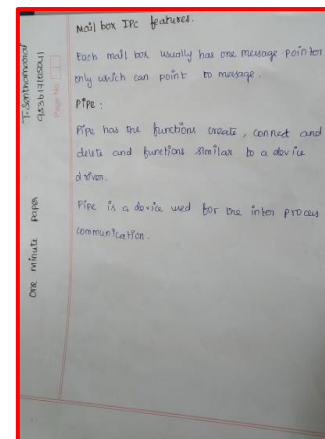 Mail box IPC features.
Each mail box usually has one message pointer
only which can point to message.
Pipe:
Pipe has the functions create, connect and
delete and functions similar to a device
driver.
Pipe is a device used for the inter process
communication.
Page No.
one minute paper